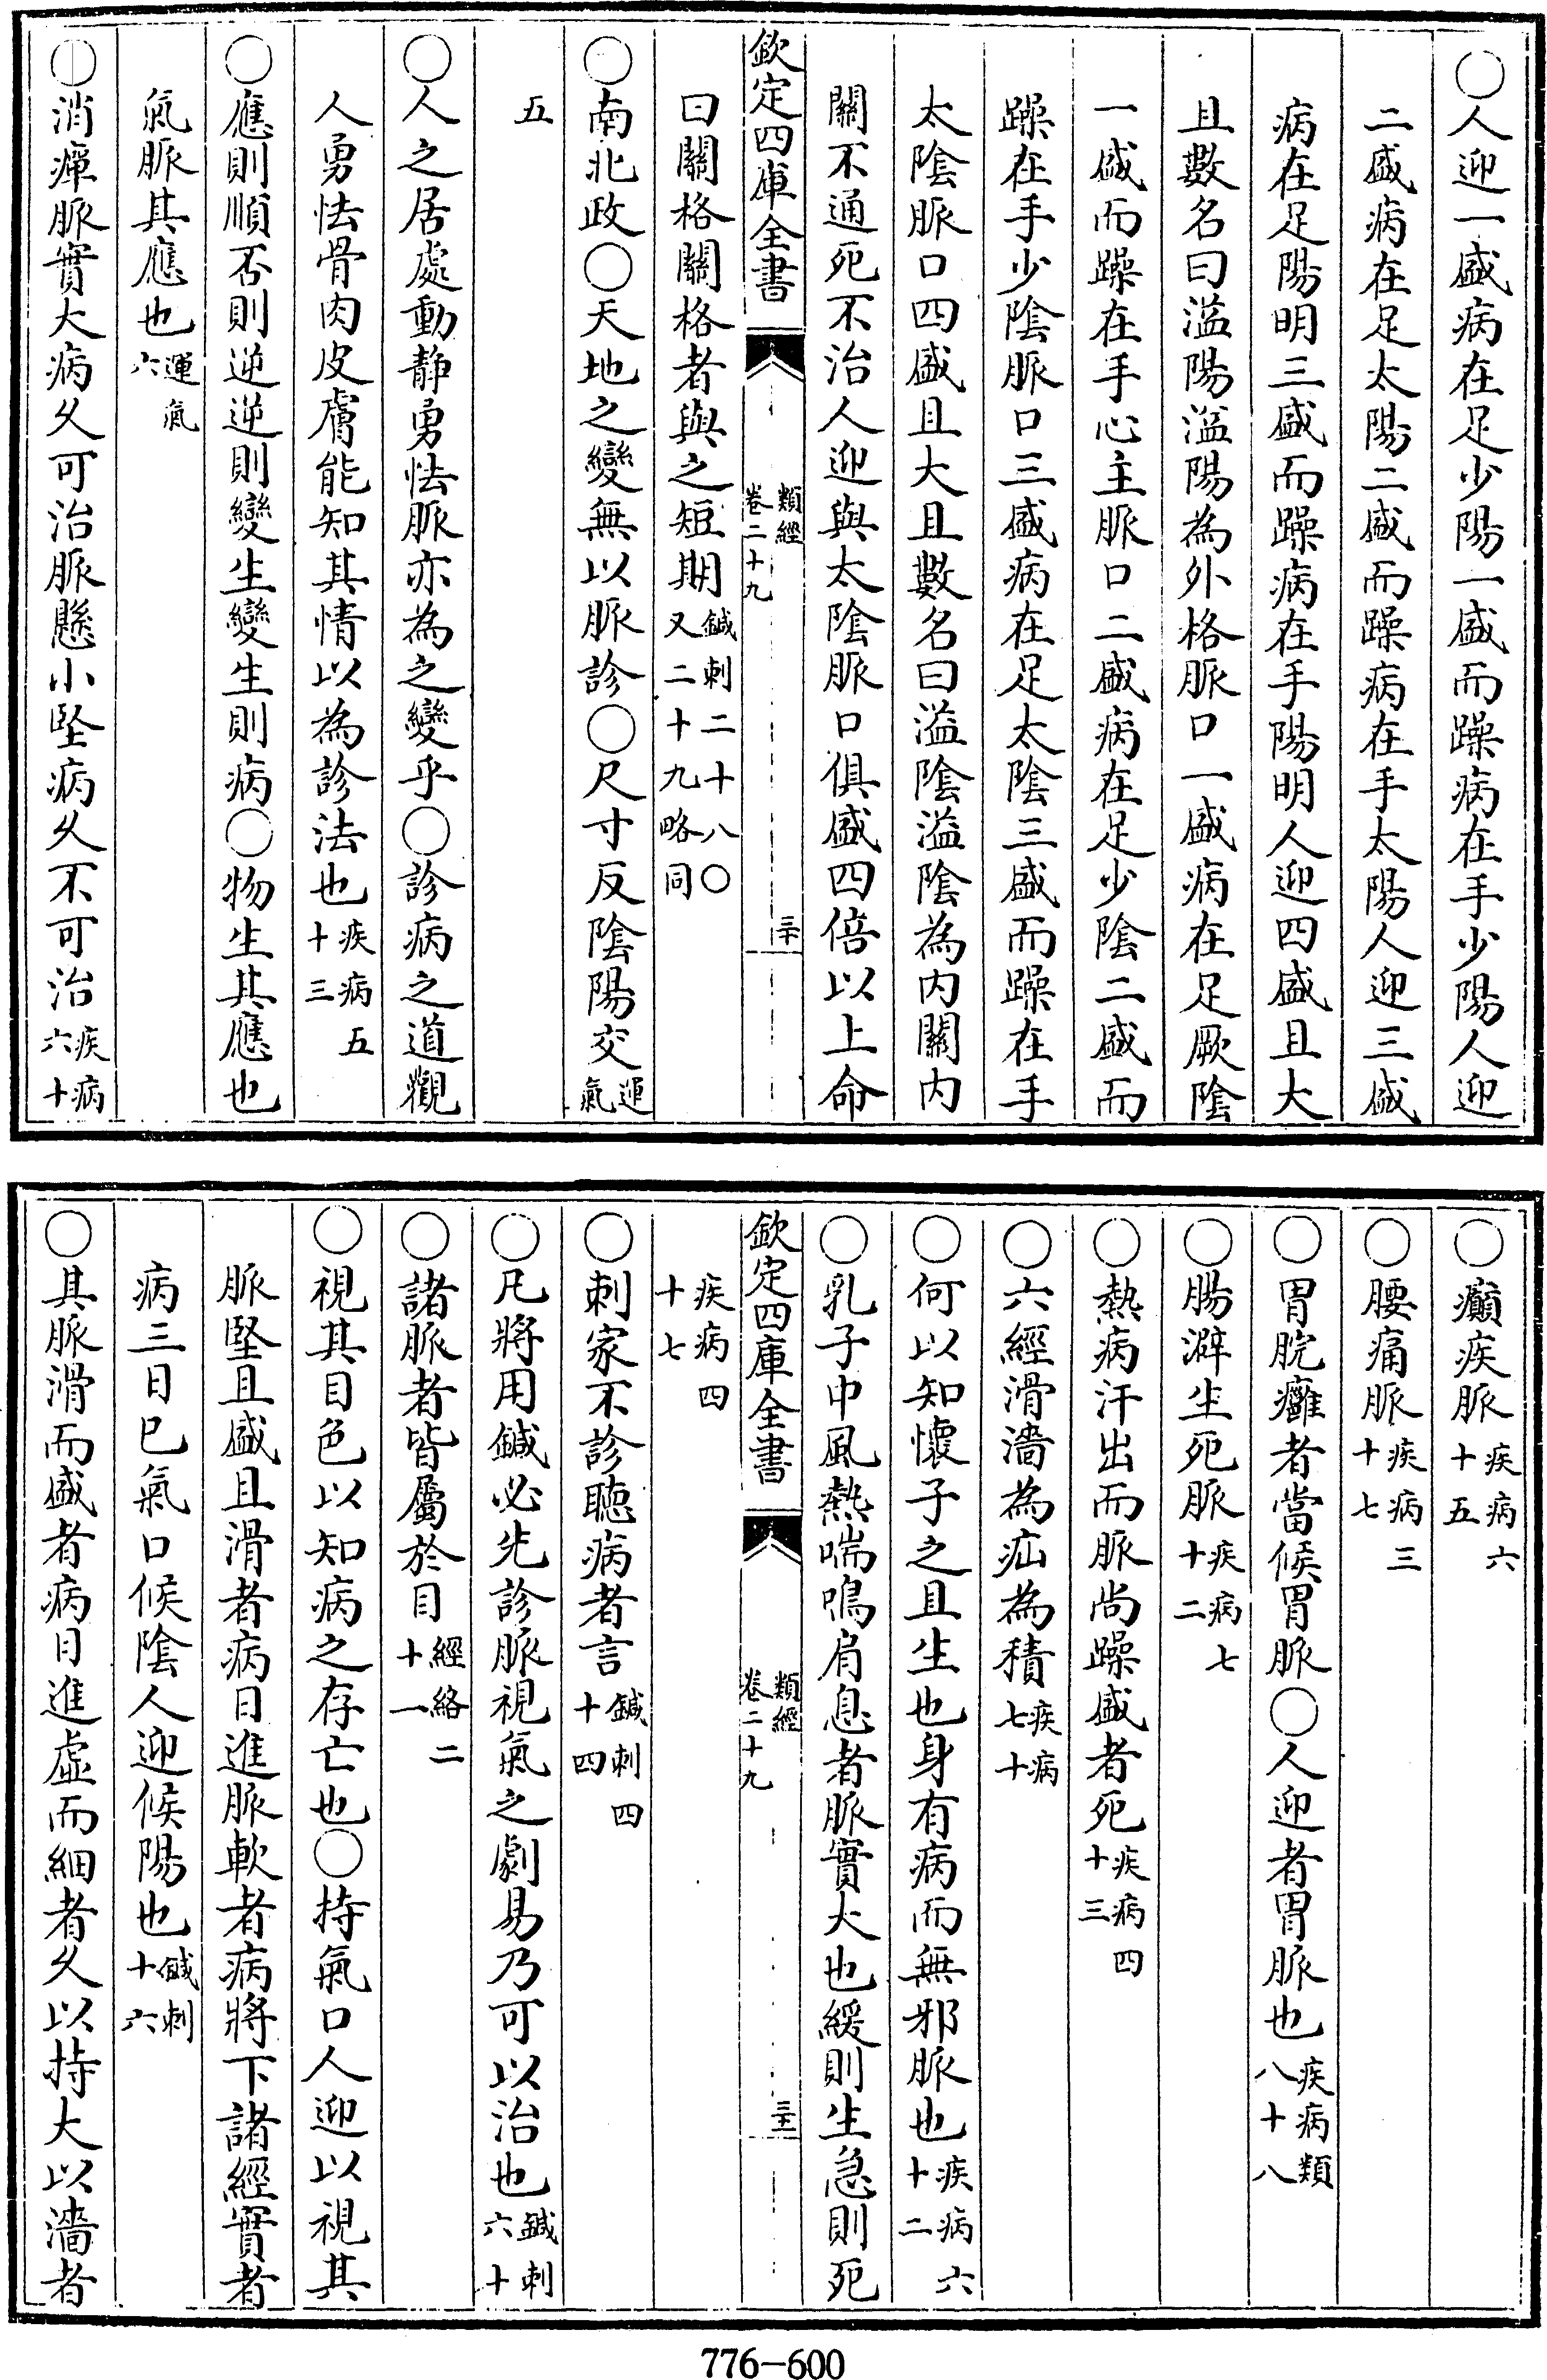 〇人迎一盛病在足少陽一盛而躁病在手少陽人迎
二盛病在足太陽二盛而躁病在手太陽人迎三盛
病在足陽明三盛而躁病在手陽明人迎四盛且大
且數名曰溢陽溢陽為外格脈口一盛病在足厥陰
一盛而躁在手心主脈口二盛病在足少陰二盛而
躁在手少陰脈口三盛病在足太陰三盛而躁在手
太陰脈口四盛且大且數名曰溢陰溢陰為内關内
關不通死不治人迎與太陰脈口俱盛四倍以上命
欽定四庫全書 類經 卷二十九 三十
曰關格關格者與之短期鍼刺二十八〇又二十九略同
〇南北政〇天地之變無以脈診〇尺寸反陰陽交運氣
五
〇人之居處動静勇怯脈亦為之變乎〇診病之道觀
人勇怯骨肉皮膚能知其情以為診法也疾病五十三
〇應則順否則逆逆則變生變生則病〇物生其應也
氣脈其應也運氣六
〇消癉脈實大病久可治脈懸小堅病久不可治疾病六十
〇癲疾脈疾病六十五
〇腰痛脈疾病三十七
〇胃脘癰者當候胃脈〇人迎者胃脈也疾病類八十八
〇腸澼生死脈疾病七十二
〇熱病汗出而脈尚躁盛者死疾病四十三
〇六經滑濇為疝為積疾病七十
〇何以知懷子之且生也身有病而無邪脈也疾病六十二
〇乳子中風熱喘鳴肩息者脈實大也緩則生急則死
欽定四庫全書 類經 卷二十九 三十一
疾病四十七
〇刺家不診聽病者言鍼刺四十四
〇凡將用鍼必先診脈視氣之劇易乃可以治也鍼刺六十
〇諸脈者皆屬於目經絡二十一
〇視其目色以知病之存亡也〇持氣口人迎以視其
脈堅且盛且滑者病日進脈軟者病將下諸經實者
病三日已氣口候陰人迎候陽也鍼刺十六
〇其脈滑而盛者病日進虛而細者久以持大以濇者
776-600